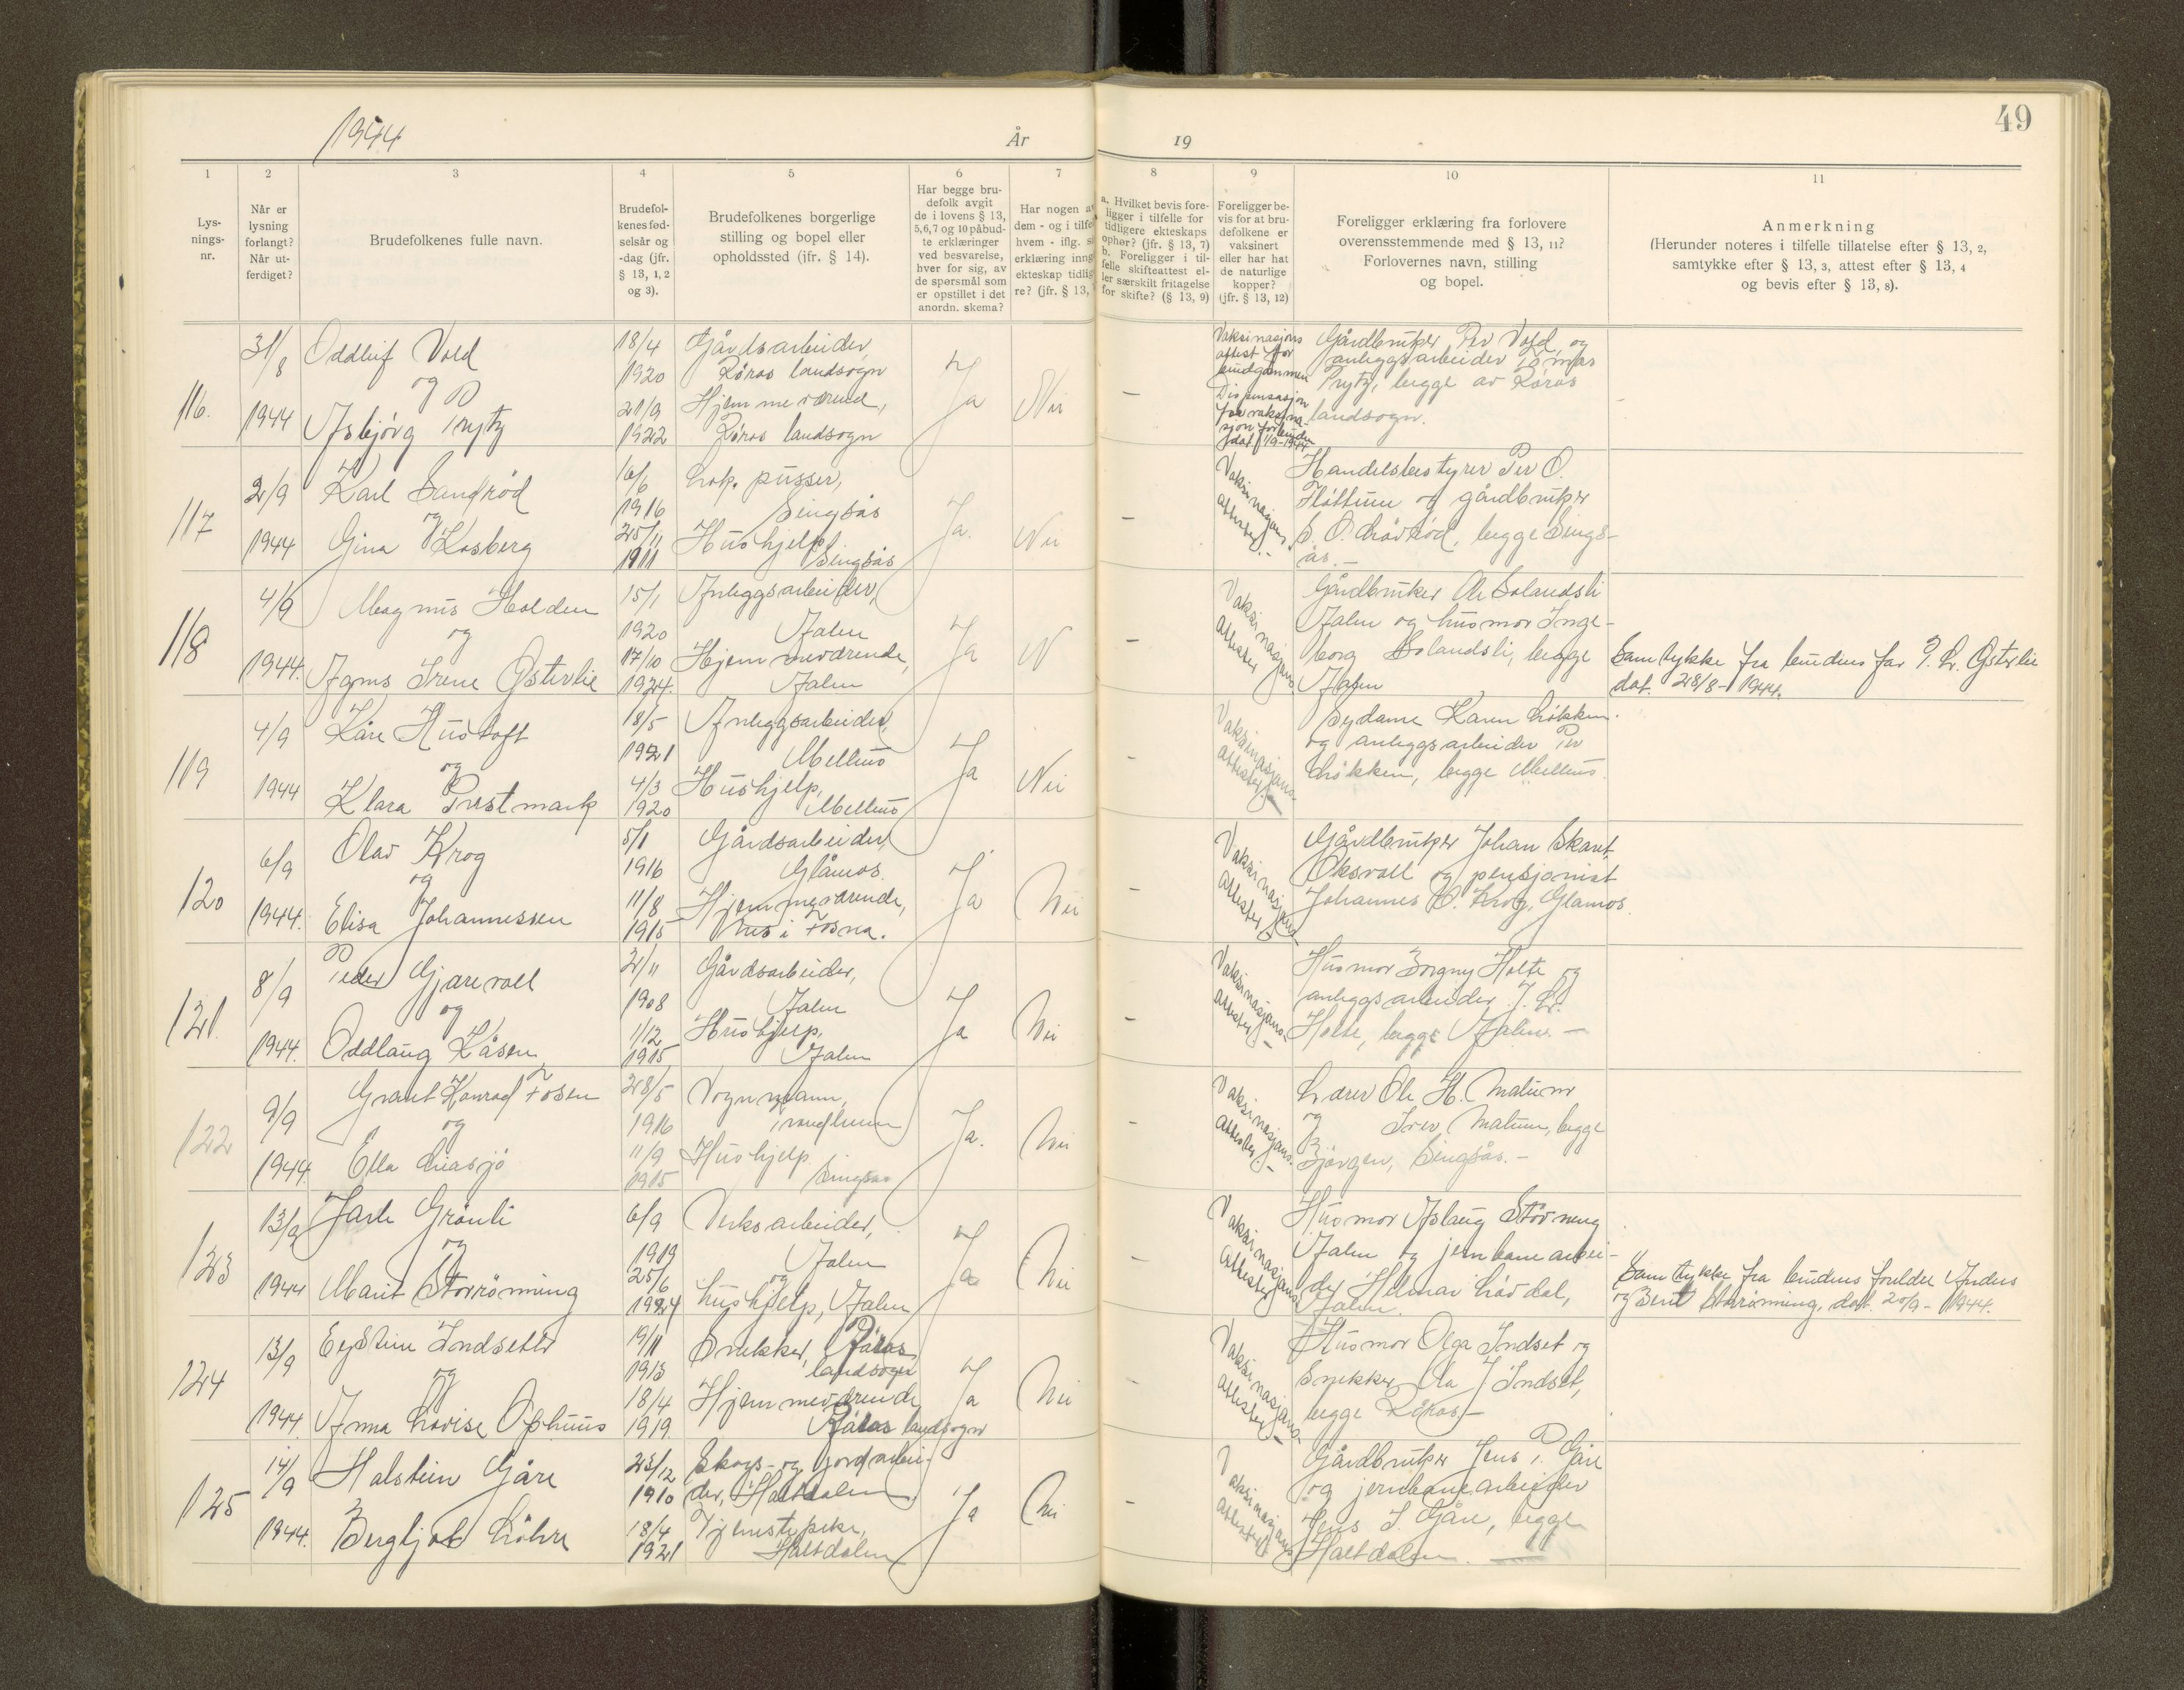 1944
År
19
49
1
2
3
4
5
6
7
8
9
10
11
Lys-
nings-
nr.
Når er
lysning
forlangt?
Når ut-
ferdiget?
Brudefolkenes fulle navn.
Brudefol-
kenes fød-
selsår og
-dag (jfr.
§ 13, 1, 2
og 3).
Brudefolkenes borgerlige
stilling og bopel eller
opholdssted (ifr. § 14).
Har begge bru-
defolk avgit
de i lovens § 13,
5,6,7 og 10 påbud-
te erklæringer
ved besvarelse,
hver for sig, av
de spørsmål som
er opstillet i det
anordn. skema?
Har nogen a
dem - og i tilfe
hvem - iflg. si
erklæring inng
ekteskap tidlig
re? (jfr. § 13,
a. Hvilket bevis fore-
ligger i tilfelle for
tidligere ekteskaps
ophør? (jfr. § 13, 7)
b. Foreligger i til-
felle skifteattest el-
ler særskilt fritagelse
for skifte? (§ 13, 9)
Foreligger be-
vis for at bru-
defolkene er
vaksinert
eller har hat
de naturlige
kopper?
(jfr. § 13, 12)
Foreligger erklæring fra forlovere
overensstemmende med § 13, 11?
Forlovernes navn, stilling
og bopel.
Anmerkning
(Herunder noteres i tilfelle tillatelse efter § 13, 2,
samtykke efter § 13, 3, attest efter § 13, 4
og bevis efter § 13, 8).
116.
31/8
1944
Oddleif Vold
og
Asbjørg Prytz
18/4
1920
21/9
1922
Gårdsarbeider,
Røros landsogn
Hjemmeværend.,
Røros landsogn
Ja
Nei
-
Vaksinasjons
attest for
brudgommen
Dispensasjon
fra vaksina-
sjon for bruden
dat. 1/9-1944
Gårdbruker Per Vold og
anleggsarbeider Tomas
Prytz, begge av Røros
landsogn.
117
2/9
1944
Karl Sandrød
og
Gina Kosberg
6/6
1916
25/11
1911
Lok. pusser,
Singsås
Hushjelp,
Singsås
Ja.
Nei
-
Vaksinasjons
attester.-
Handelsbestyrer Per O.
Fløttum og gårdbruker
S. O. Løvrød, begge Sings-
ås.-
118
4/9
1944.
Magnus Holden
og
Agnes Irene Østerlie
15/1
1920
17/10
1924.
Anleggsarbeider,
Ålen
Hjemmeværende,
Ålen
Ja
N
-
Vaksinasjons
attester
Gårdbruker Ole Solandsli
Ålen og husmor Inge-
borg Solandsli, begge
Ålen
Samtykke fra brudens far P. L. Østerlie
dat. 28/8-1944.
119
4/9
1944
Kåre Hustoft
og
Klara Prestmark
18/5
1921
4/3
1920
Anleggsarbeider,
Melhus
Hushjelp,
Melhus
Ja
Nei
-
Vaksinasjons
attester.-
Sydame Karen Løkken
og anleggsarbeider Per
Løkken, begge Melhus.
120
6/9
1944.
Olav Krog
og
Elisa Johannessen
5/1
1916
11/8
1915
Gårdsarbeider,
Glåmos.
Hjemmeværende,
Hus i Fosna.
Ja
Nei
-
Vaksinasjons
attester.-
Gårdbruker Johan Skavt,
Oksvoll og pensjonist
Johannes O. Krog, Glåmos.
121.
8/9
1944.
Peder Gjærevoll
og
Oddlaug Kåsen
2/11
1908
1/12
1915
Gårdsarbeider,
Ålen
Hushjelp,
Ålen
Ja
Nei
-
Vaksinasjons
attester -
Husmor Borgny Holte og
anleggsarbeider J. L.
Holte, begge Ålen. -
122
9/9
1944.
Konrad Fosen
og
Ella
28/5
1916
11/9
1915
Vognmann,
Hushjelp
Singsås
Ja.
Nei
-
Vaksinasjons
attester -
Lærer Ole H. Matum
og
Matum, begge
Bjørgen, Singsås. -
123
13/9
1944
Jarle Grønli
og
Marit Storrønning
6/9
1919
25/6
1924
Verksarbeider,
Ålen
og
hushjelp, Ålen
Ja
Nei
-
Vaksinasjons
attester
Husmor Aslaug Støvneng
Ålen og jernbanearbei-
der Helmar Løvdal,
Ålen.
Samtykke fra brudens foreldre Anders
og Berit Storrønning, dat. 20/9-1944.
124
13/9
1944.
Eystein Indseth
og
Anna Lovise Ophuus
19/11
1913
18/4
1919
Snekker, Røros
landsogn
Hjemmeværende
Røros landsogn
Ja
Nei
-
Vaksinasjons
attester -
Husmor Olga Indset og
Snekker Ola J Indset,
begge Røros.-
125
14/9
1944.
Halstein Gåre
Bergljot Løhre
23/12
1910
18/4
1921
Skogs- og jordarbei-
der, Haltdalen
Tjenestepike,
Haltdalen
Ja
Nei
-
Vaksinasjons
attester
Gårdbruker Jens P. Gåre
og jernbanearbeider
Jens J. Gåre, begge
Haltdalen.